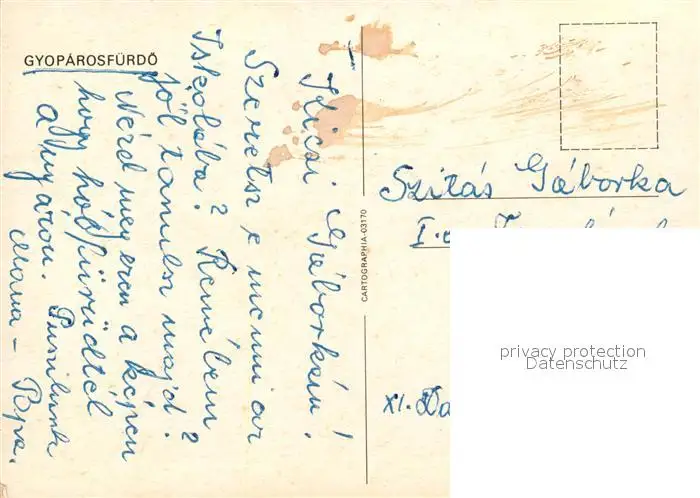 GYOPÁROSFÜRDŐ
Kicsi Gáborkám!
Szeretsz e menni az
Iskolába? Remélem
jól tanulsz majd?
Nézd meg ezen a képen
hogy hól fürödtél
a nyáron. Puszilunk
Mama - Papa.
CARTOGRAPHIA-03170
Szitás Gáborka
I.
XI.
privacy protection
Datenschutz